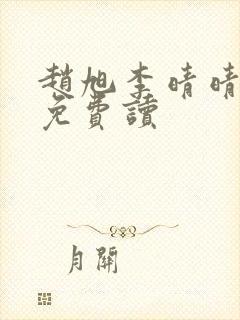 趙旭李晴晴
免費讀
月關